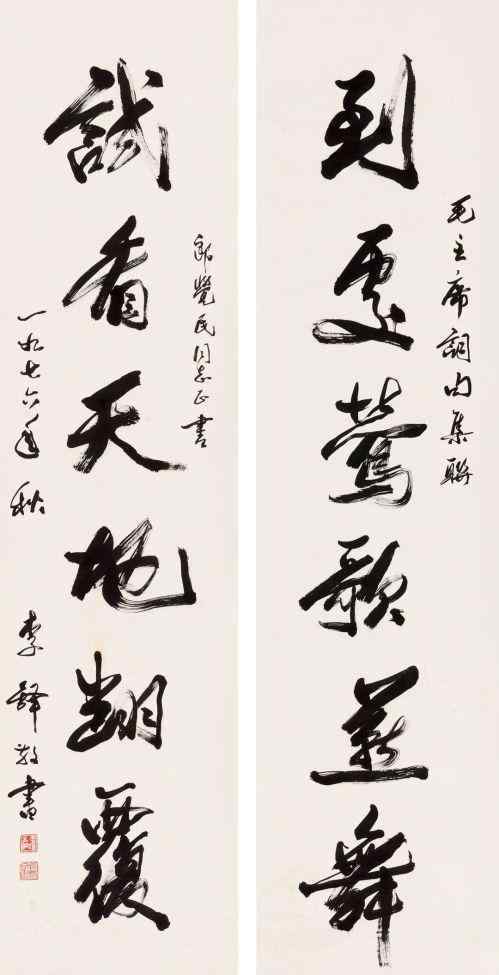 毛主席詞句集聯
到處鶯歌燕舞
覺民同志正書
試看天地翻覆
一九七六年秋 李鐸敬書